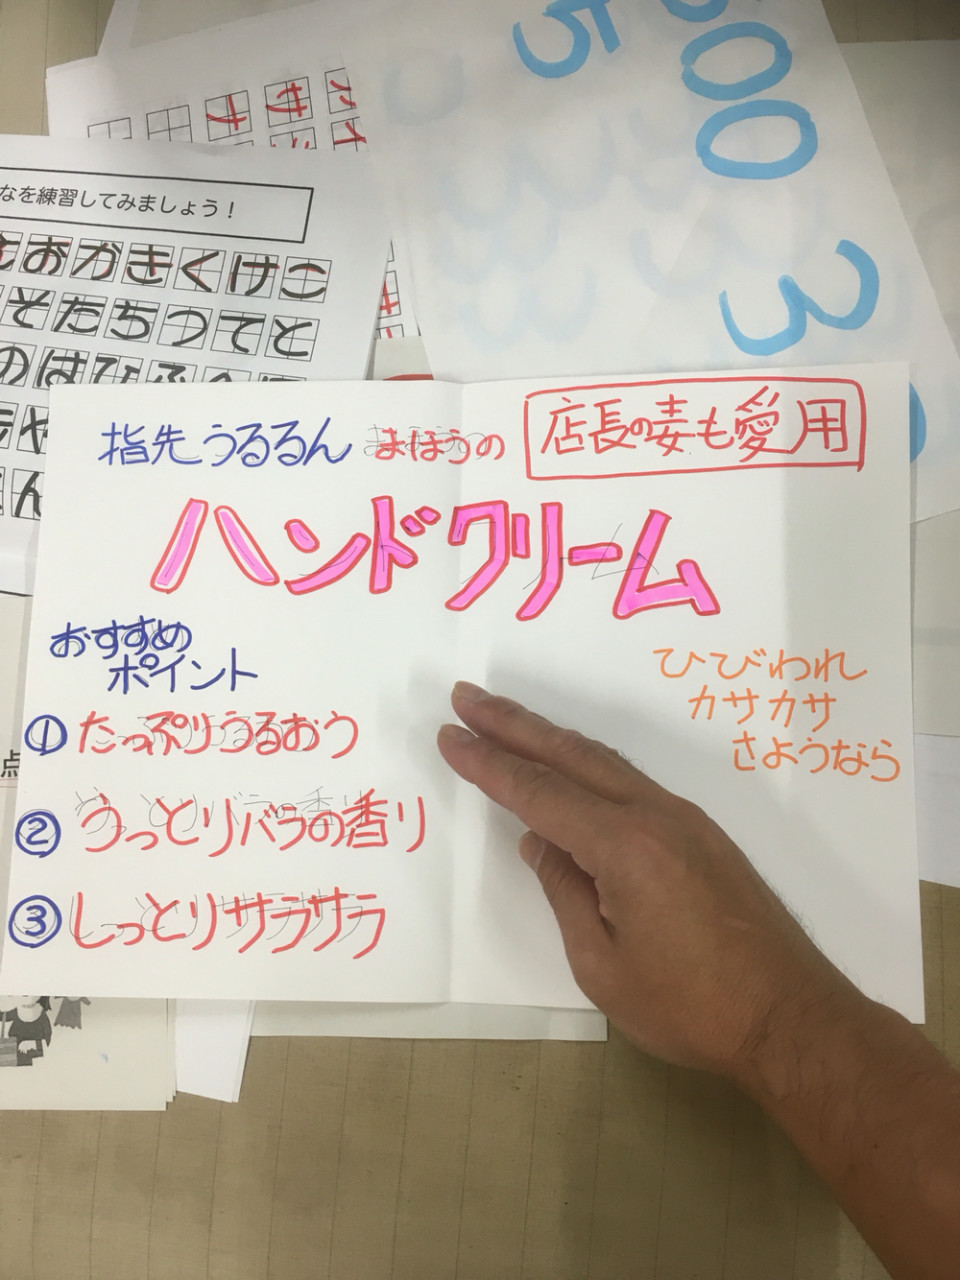 5
500
3
なを練習してみましょう！
おかきくけこ
そたちつてと
のはひふへほ
や
ん
店長の妻も愛用
指先うるるん まほうの
ハンドクリーム
おすすめ
ポイント
① たっぷりうるおう
② うっとりバラの香り
③ しっとりサラサラ
ひびわれ
カサカサ
さようなら
点